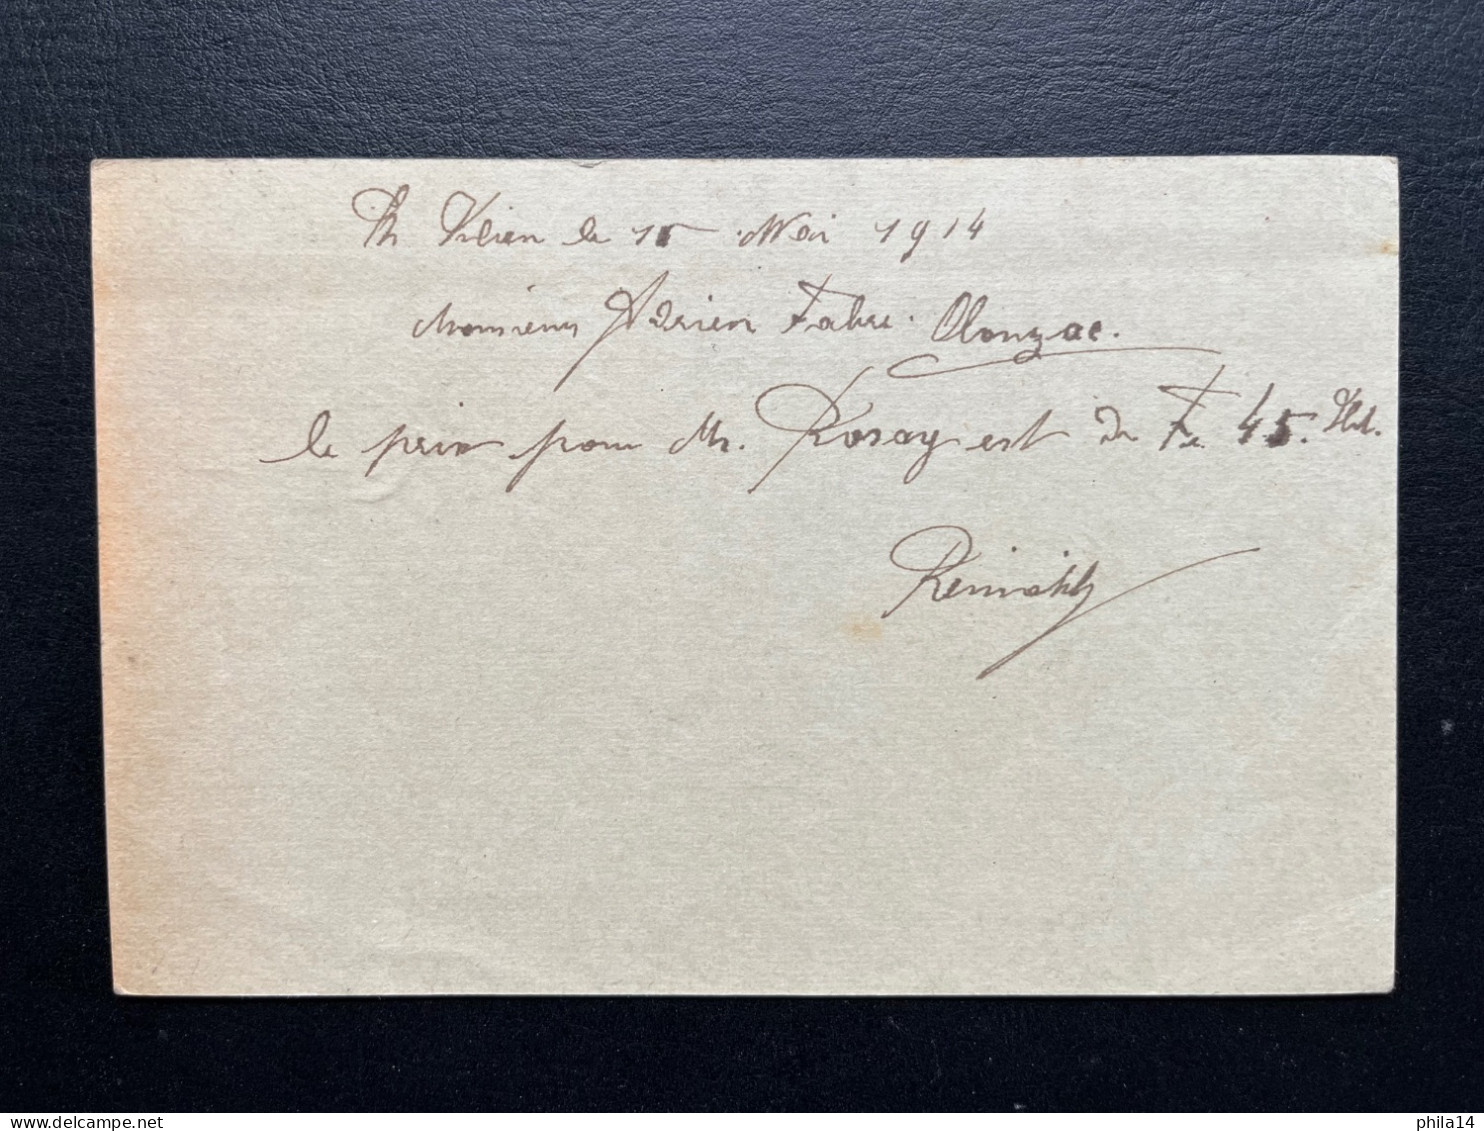 le 15 Mai 1914
Monsieur Adrien Fabre. Olonzac.
le prix pour Mr. Rosay est de Fr 45.
delcampe.net
phila14